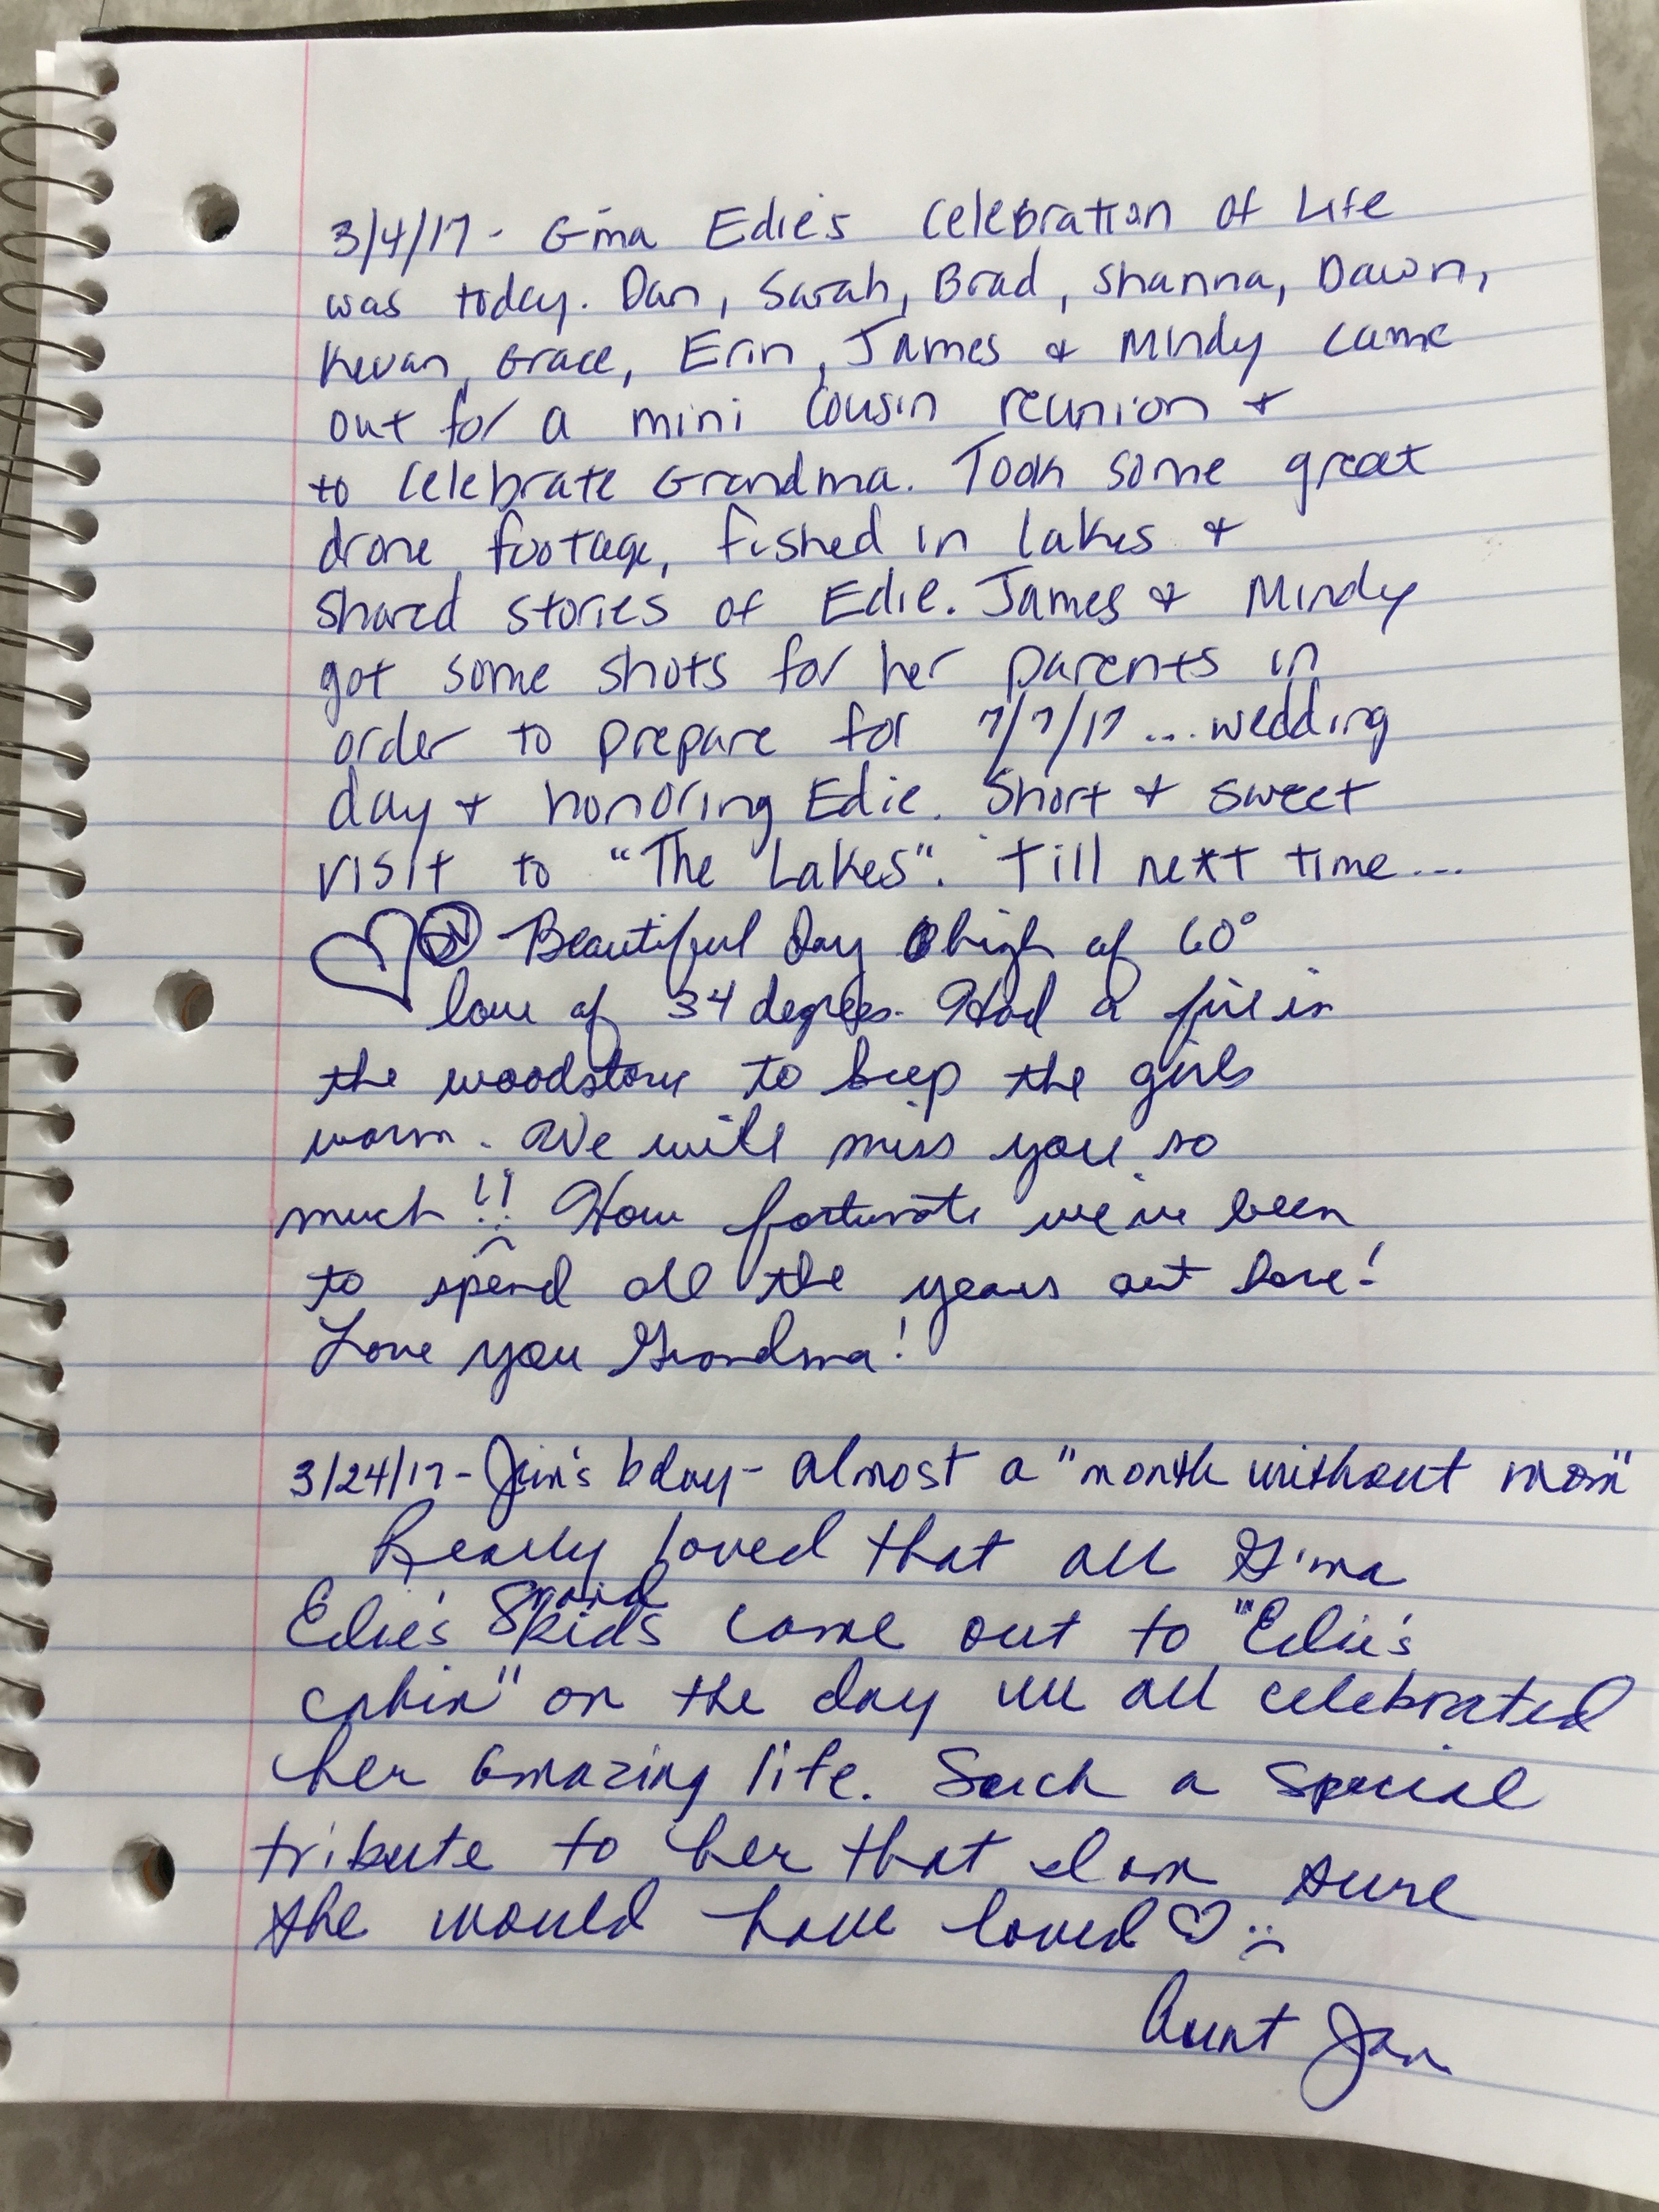 3/4/17 - G-ma Edie's Celebration of Life
was today. Dan, Sarah, Brad, Shanna, Dawn,
Kevan, Grace, Erin, James & Mindy came
out for a mini cousin reunion +
to celebrate Grandma. Took some great
drone footage, fished in lakes +
shared stories of Edie. James & Mindy
got some shots for her parents in
order to prepare for 7/7/17 ... wedding
day + honoring Edie. Short + sweet
visit to "The Lakes". Till next time...
♡ Beautiful Day high of 60°
low of 34 degrees. Had a fire in
the woodstove to keep the girls
warm. We will miss you so
much!! How fortunate we've been
to spend all the years out here!
Love you Grandma!
3/24/17 - Jan's bday - almost a "month without mom"
Really loved that all G'ma
Edie's grand kids came out to "Edie's
cabin" on the day we all celebrated
her amazing life. Such a special
tribute to her that I am sure
she would have loved ♡ :(
Aunt Jan